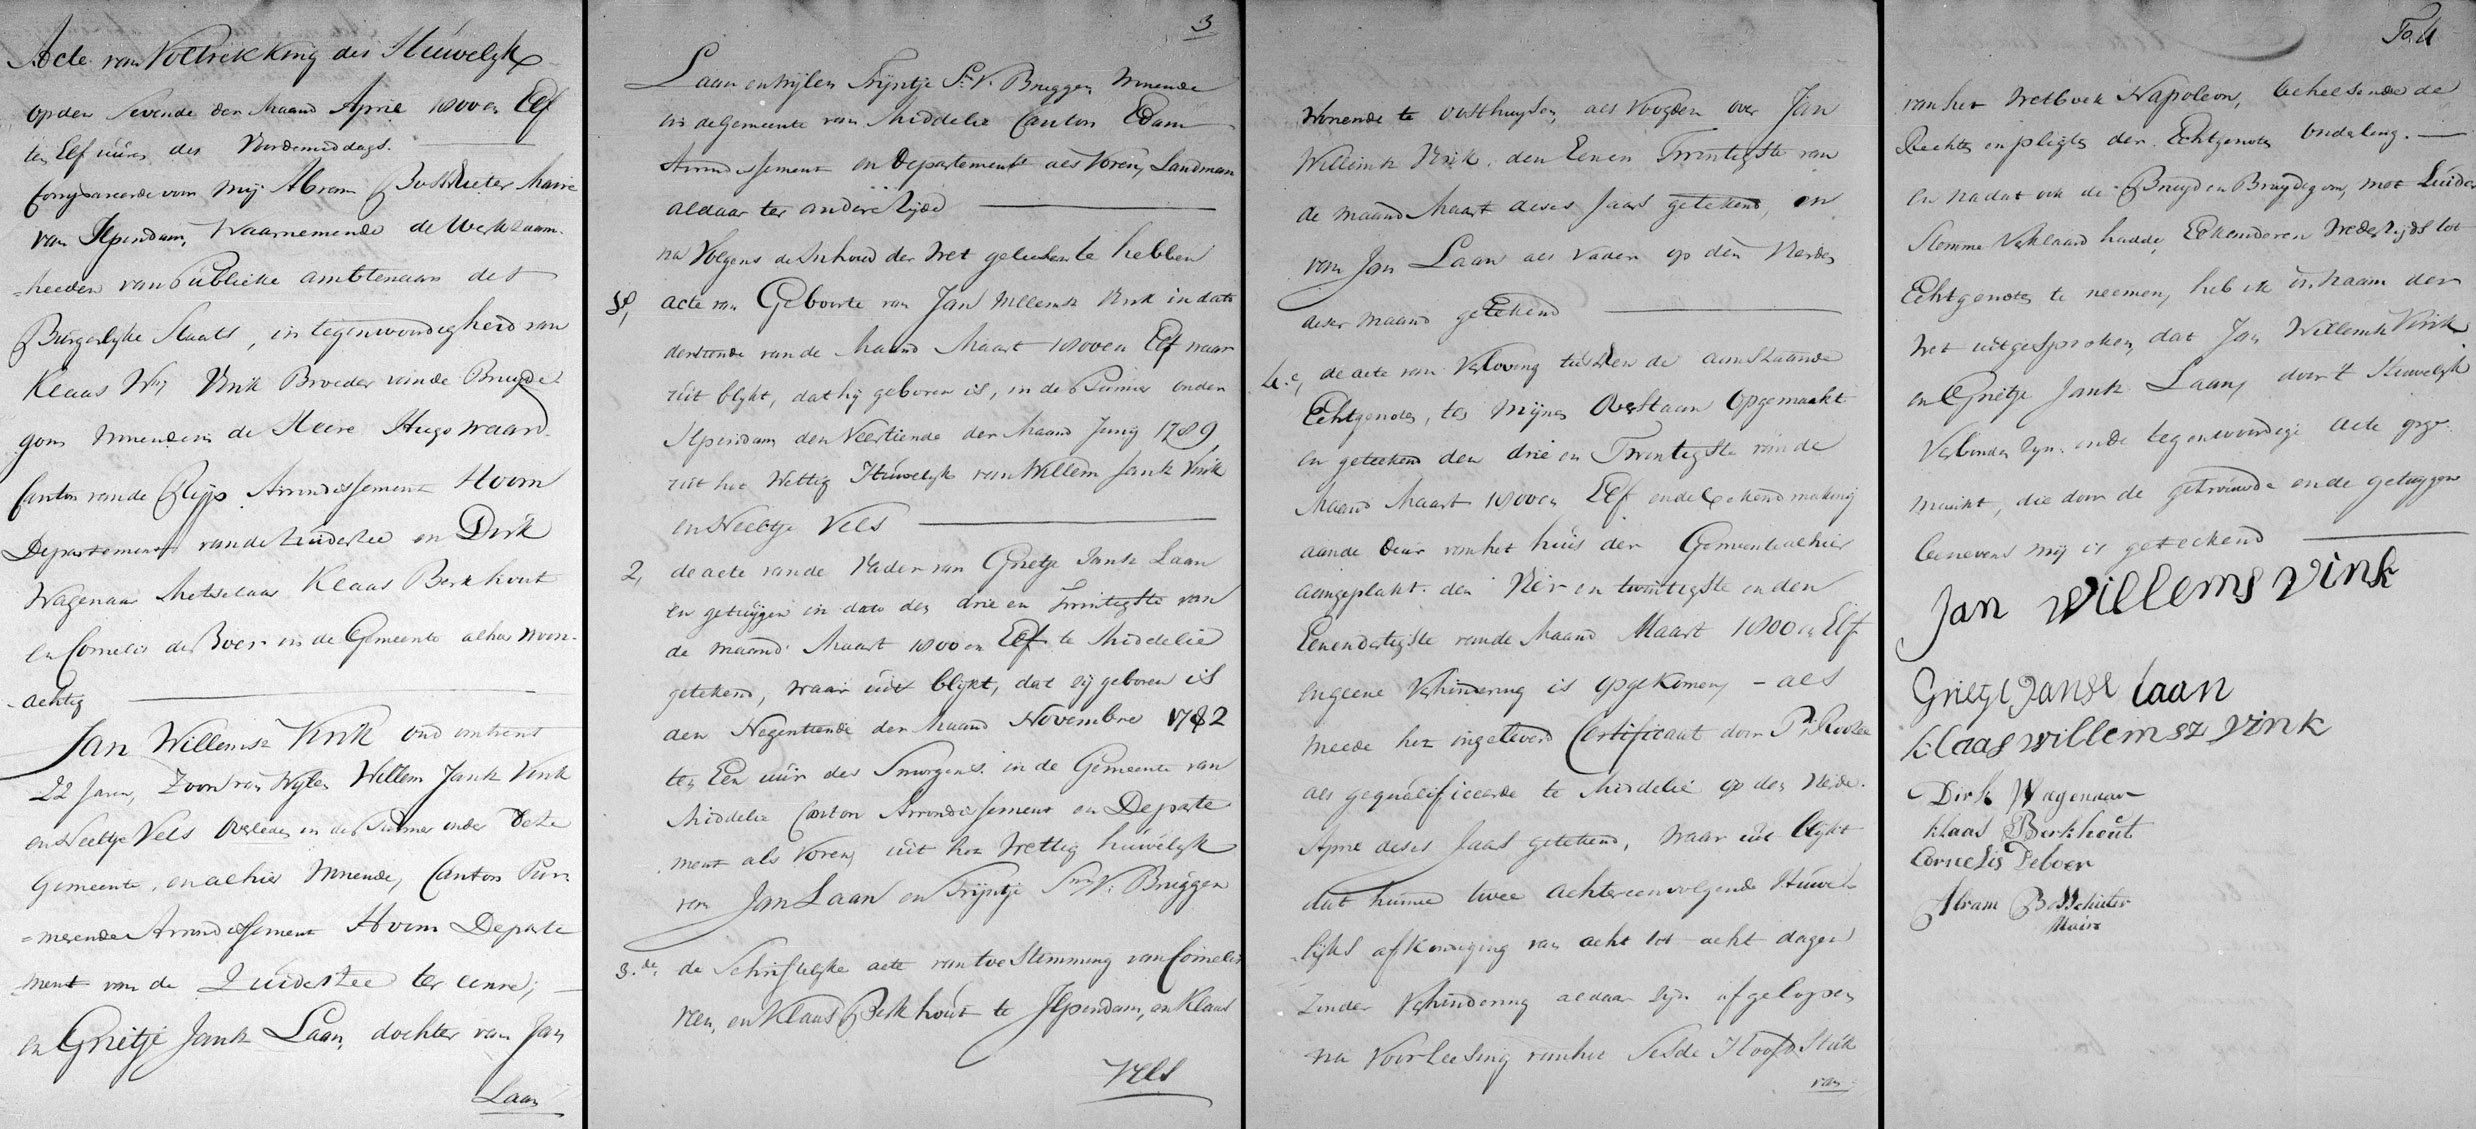 Acte van Voltrekking des Huwelyk
op den Sevende der Maand April 1800 en Elf
ten Elf uúren des Voordemiddags.
Compareerde voor Mij Abram Bosschieter Maire
van Ilpendam, Waarnemende de Werkzaam-
=heeden van Publieke ambtenaar des
Burgerlyke Staats, in tegenwoordigheid van
Klaas Wz Vink Broeder van de Bruyde
gom wonende in de Heere Hugowaard
Canton van de Ryp Arrondissement Hoorn
Departement van de Zuiderzee en Dirk
Wagenaar Metselaar Klaas Berkhout
en Cornelis de Boer in de Gemeente alhier woon-
-achtig
Jan Willemsz Vink oud omtrent
22 Jaren, Zoon van Wylen Willem Jansz Vink
en Neeltje Vels Overleden in de Purmer onder Deze
Gemeente, en alhier Wonende, Canton Pur-
=merende Arrondissement Hoorn Departe
ment van de Zuiderzee ter eenre;
en Grietje Jansz Laan, dochter van Jan
Laan
3
Laan en wylen Trijntje Sn V. Bruggen Wonende
in de Gemeente van Middelie Canton Edam
Arrondissement en Departement als Voren, Landman
aldaar ter andere zijde
na Volgens de Inhoud der Wet geleesen te hebben
acte van Geboorte van Jan Willemsz Vink in dato
dertiende van de Maand Maart 1800 en Elf waar
uit blykt, dat hij geboren is, in de Purmer onder
Ilpendam den Veertiende der Maand Juny 1789,
uit het Wettig Huwelyk van Willem Jansz Vink
en Neeltje Vels
2, de acte van de Vader van Grietje Jansz Laan
en getuygen in dato den drie en Twintigste van
de maand Maart 1800 en Elf te Middelie
getekend, waar uit blykt, dat zij geboren is
den Negentiende der Maand Novembre 1782
ten Een uúr des Smorgens in de Gemeente van
Middelie Canton Arrondissement en Departe
ment als Voren, uit het Wettig huwelyk
van Jan Laan en Trijntje Sn V. Bruggen
3.de de Schriftelyke acte van toeStemming van Cornelis
en Klaas Berkhout te Ilpendam, en Klaas
Vels
Wonende te Oosthuysen als Voogden over Jan
Willemsz Vink den Eenen Twintigste van
de maand Maart deses Jaars getekend, en
van Jan Laan als Vader op den Vierden
deser maand getekend
4.e, de acte van Verloving tusschen de aanstaande
Echtgenoten, ten Mijnen Overstaan Opgemaakt
en getekend den drie en Twintigste van de
Maand Maart 1800 en Elf en de bekendmaking
aan de Deur van het huis der Gemeente alhier
aangeplakt den Vier en twintigste en den
Eenendertigste van de Maand Maart 1800 en Elf
en geene Verhindering is opgekomen, - als
meede het ingeleverd Certificaat door P.
als gequalificeerde te Middelie op den Vierde
April deses Jaars getekend, waar uit blykt
dat hunne twee achtereenvolgende Huwe-
-lijks afkondiging van acht tot acht dagen
zonder Verhindering aldaar zijn afgelopen,
na Voorleesing van het Sesde Hoofdstuk
van
Fo. 4
van het Wetboek Napoleon, behelsende de
Rechten en pligten der Echtgenoten onderling.
en nadat ook de Bruyd en Bruydegom, met Luider
Stemme Verklaard hadde, Elkanderen Wederzyds tot
Echtgenoten te neemen, heb ik in Naam der
Wet uitgesproken, dat Jan Willemsz Vink
en Grietje Jansz Laan, door 't Huwelyk
Verbonden zyn, en de tegenwoordige acte opge
maakt, die door de getrouwde en de getuygen
benevens mij is geteekend
Jan Willems Vink
Grietje Janse Laan
Klaas Willemsz Vink
Dirk Wagenaar
Klaas Berkhout
Cornelis Deboer
Abram Bosschieter
Maire